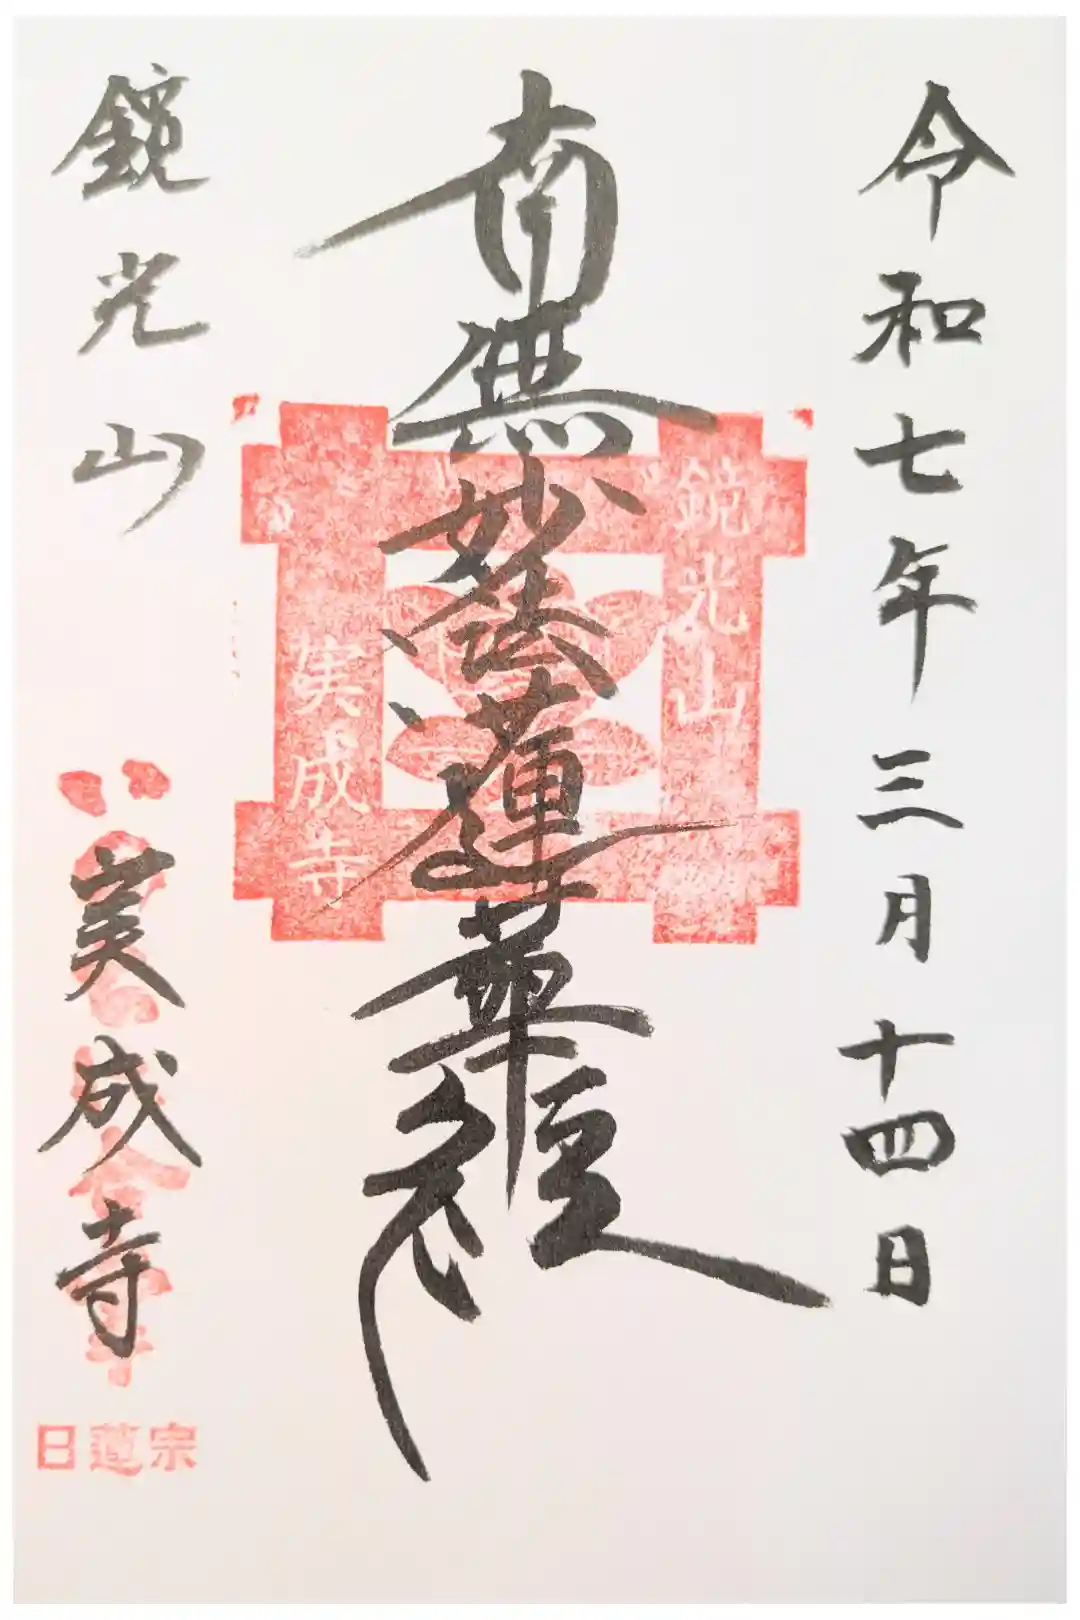 令和七年三月十四日
南無妙法蓮華経
鏡光山
実成寺
鏡光山
実成寺
日蓮宗